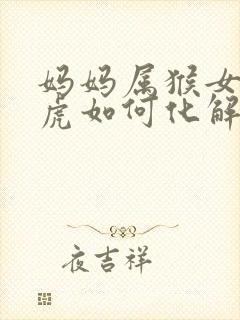 妈妈属猴女
虎如何化解
夜吉祥